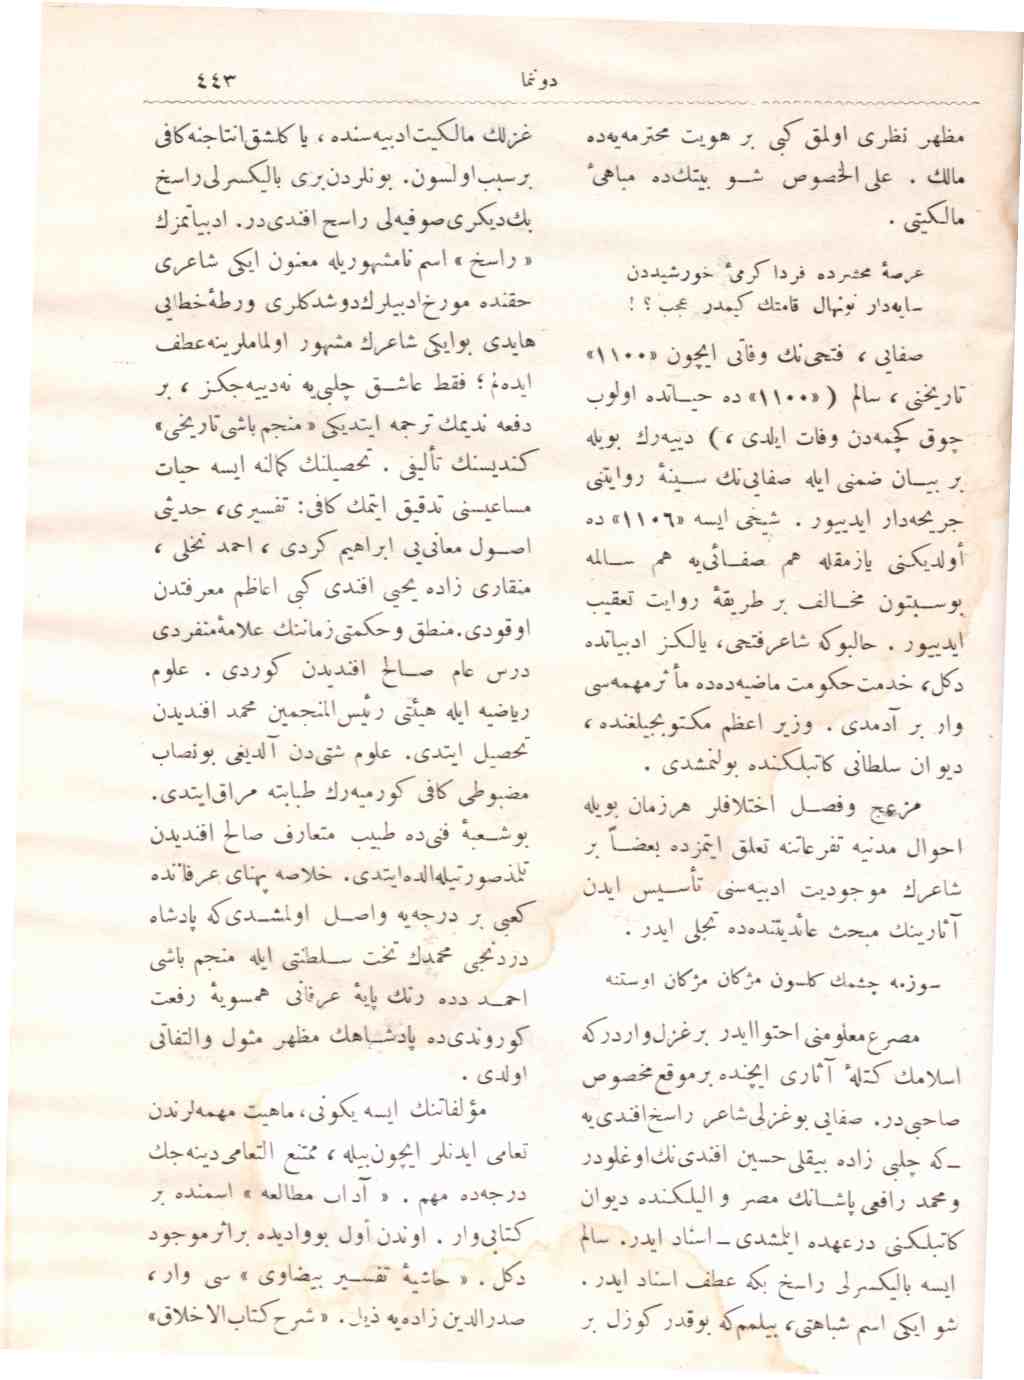 دونما
٤٤٣
مظهر نظری اولمق کبی بر هویت محترمه‌یه‌ده
مالك . علی الخصوص شو بیتك‌ده مباهیٔ
مالکیتی .
عرصۀ محشرده فردا کرمیٔ خورشیددن
سایه‌دار نونهال قامتك کیمدر عجب ؟ !
صفایی ، فتحی‌نك وفاتی ایچون «۱۱۰۰»
تاریخنی ، سالم ( «۱۱۰۰» ده حیاتده اولوب
چوق کچمه‌دن وفات ایلدی ، ) دییه‌رك بویله
بر بیان ضمنی ایله صفایی‌نك سینۀ روایتنی
جریحه‌دار ایدییور . شیخی ایسه «۱۱۰۶» ده
أولدیکنی یازمقله هم صفائی‌یه هم سالمه
بوسبتون مخالف بر طریقۀ روایت تعقیب
ایدییور . حالبوکه شاعر فتحی، یالکز ادبیاتده
دکل، خدمت حکومت ماضیه‌ده‌ده مأثر مهمه‌سی
وار بر آدمدی . وزیر اعظم مکتوبجیلغنده ،
دیوان سلطانی کاتبلکنده بولنمشدی .
مزعج وفصل اختلافلر هرزمان بویله
احوال مدنیه تفرعاتنه تعلق ایتمزده بعضاً بر
شاعرك موجودیت ادبیه‌سنی تأسیس ایدن
آثارینك مبحث عائدیتنده‌ده تجلی ایدر .
سوزمه چشمك کلسون مژکان مژکان اوستنه
مصرع معلومنی احتوا ایدر برغزل واردرکه
اسلامك کتلۀ آثاری ایچنده برموقع مخصوص
صاحبی‌در. صفایی بوغزلی شاعر راسخ افندی‌یه
ـ که چلبی زاده بیقلی حسین افندی‌نك اوغلودر
و محمد رافعی پاشانك مصر والیلکنده دیوان
کاتبلکنی درعهده ایلمشدی ـ اسناد ایدر. سالم
ایسه بالیکسرلی راسخ بکه عطف اسناد ایدر .
شو ایکی اسم شباهتی، بیلمم‌که بوقدر کوزل بر
غزلك مالکیت ادبیه‌سنده ، یا کلشق انتاجنه کافی
برسبب اولسون. بونلردن بری بالیکسرلی راسخ
بك دیکری صوفیه‌لی راسخ افندی‌در. ادبیاتمزك
« راسخ » اسم نامشهوریله معنون ایکی شاعری
حقنده مورخ ادیبلرك دوشدکلری ورطۀ خطایی
هایدی بوایکی شاعرك مشهور اولماملرینه عطف
ایده‌لم ؛ فقط عاشق چلبی‌یه نه‌دییه‌جکز ، بر
دفعه ندیمك ترجمه ایتدیکی «منجم باشی تاریخی»
کندیسنك تألیفی . تحصیلنك کمالنه ایسه حیات
مساعیسنی تدقیق ایتمك کافی: تفسیری، حدیثی
اصول معانی‌یی ابراهیم کردی ، احمد نخلی ،
منقاری زاده یحیی افندی کبی اعاظم معرفتدن
اوقودی. منطق و حکمتی زماننك علامۀ منفردی
درس عام صالح افندیدن کوردی . علوم
ریاضیه ایله هیئتی رئیس المنجمین محمد افندیدن
تحصیل ایتدی. علوم شتی‌دن آلدیغی بونصاب
مضبوطی کافی کورمیه‌رك طبابته مراق ایتدی.
بوشعبۀ فنی‌ده طبیب متعارف صالح افندیدن
تلمذ صورتیله الده ایتدی. خلاصه پهنای عرفانده
کعبی بر درجه‌یه واصل اولمشدی‌که پادشاه
دردنجی محمدك تخت سلطنتی ایله منجم باشی
احمد دده رنك پایۀ عرفانی همسویۀ رفعت
کوروندی‌ده پادشاهك مظهر مثول والتفاتی
اولدی .
مؤلفاتنك ایسه یکونی، ماهیت مهمه‌لرندن
تعامی ایدنلر ایچون بیله ، ممتنع التعامی دینه‌جك
درجه‌ده مهم . « آداب مطالعه » اسمنده بر
کتابی وار . اوندن أول بووادیده براثر موجود
دکل . « حاشیۀ تفسیر بیضاوی » سی وار ،
صدرالدین زاده‌یه ذیل . « شرح کتاب الاخلاق»